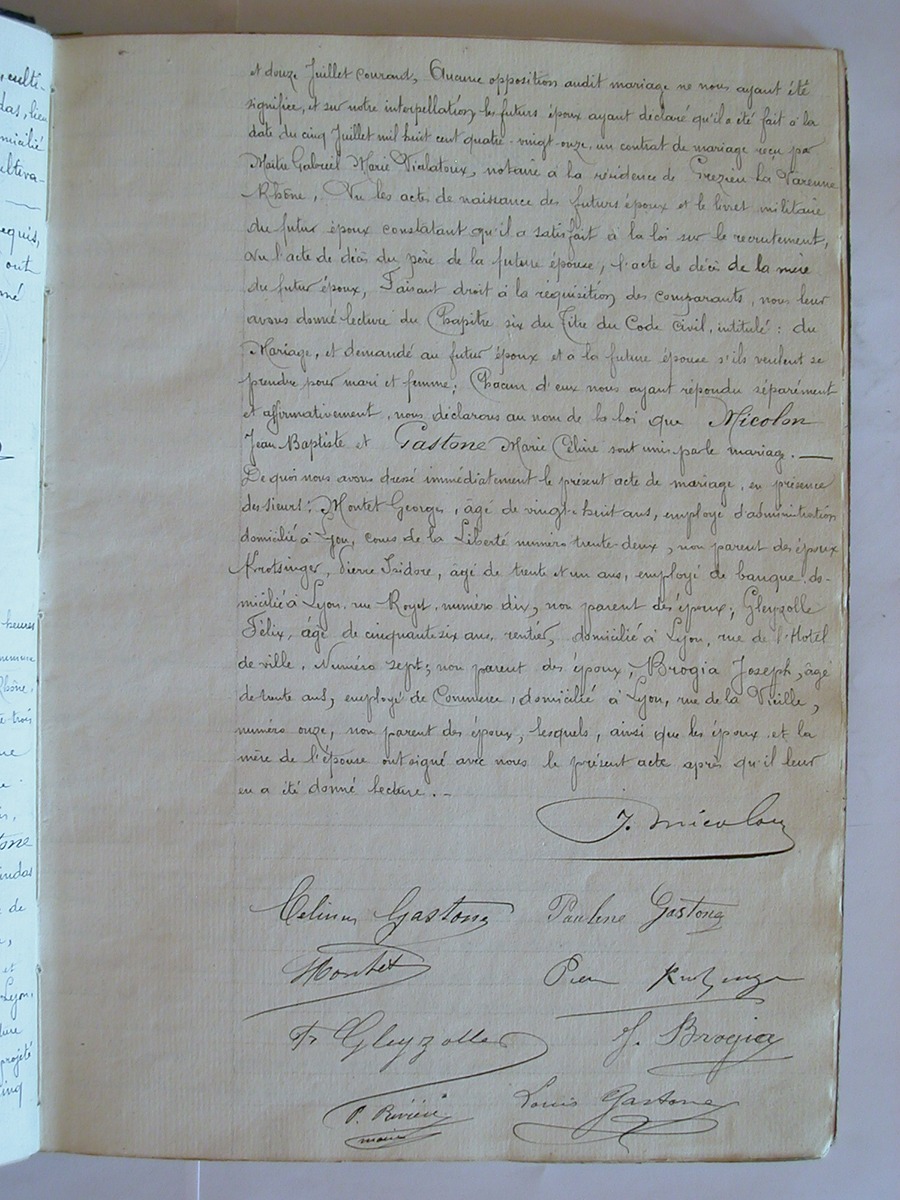 culti-
las, lieu
micilié
ultiva-
equis,
ont
né
heures
Rhône,
te trois
ne
tone
indas
de
et
Lyon,
projeté
cinq
et douze Juillet courant, Aucune opposition audit mariage ne nous ayant été
signifiée, et sur notre interpellation, les futurs époux ayant déclaré qu'il a été fait à la
date du cinq Juillet mil huit cent quatre-vingt-onze, un contrat de mariage reçu par
Maître Gabriel Marie Vialatoux, notaire à la résidence de Grezieu-La Varenne
Rhône, Vu les actes de naissance des futurs époux et le livret militaire
du futur époux constatant qu'il a satisfait à la loi sur le recrutement,
Vu l'acte de décès du père de la future épouse, l'acte de décès de la mère
du futur époux, Faisant droit à la réquisition des comparants, nous leur
avons donné lecture du Chapitre six du Titre du Code Civil, intitulé : du
Mariage, et demandé au futur époux et à la future épouse s'ils veulent se
prendre pour mari et femme; Chacun d'eux nous ayant répondu séparément
et affirmativement, nous déclarons au nom de la loi que Micolon
Jean Baptiste et Gastone Marie Céline sont unis par le mariage. —
De quoi nous avons dressé immédiatement le présent acte de mariage, en présence
des sieurs : Montet Georges, âgé de vingt-huit ans, employé d'administration
domicilié à Lyon, cours de la Liberté numéro trente-deux, non parent des époux
Krotsinger, Pierre Isidore, âgé de trente et un ans, employé de banque, do-
micilié à Lyon, rue Royet, numéro dix, non parent des époux; Gleyzolle
Félix, âgé de cinquante six ans, rentier, domicilié à Lyon, rue de l'Hôtel
de ville, Numéro sept; non parent des époux, Brogia Joseph, âgé
de trente ans, employé de Commerce, domicilié à Lyon, rue de la Vieille,
numéro onze, non parent des époux, lesquels, ainsi que les époux et la
mère de l'épouse ont signé avec nous le présent acte après qu'il leur
en a été donné lecture. -
J. Micolon
Céline Gastone Pauline Gastone
Montet Pierre
F. Gleyzolle J. Brogia
P. Rivière Louis Gastone
maire